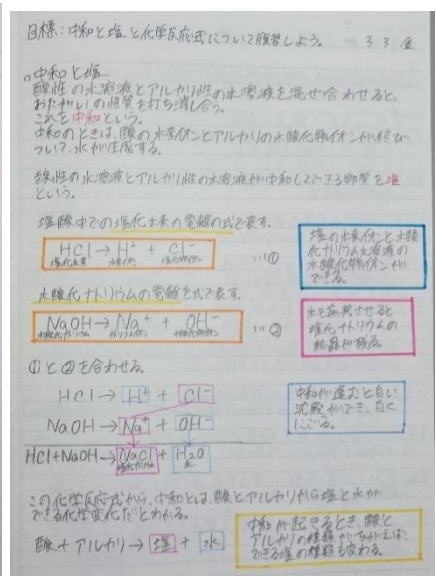 目標:中和と塩と化学反応式について復習しよう。 3 3 金
中和と塩
酸性の水溶液とアルカリ性の水溶液を混ぜ合わせると、
おたがいの性質を打ち消し合う。
これを中和という。
中和のときは、酸の水素イオンとアルカリの水酸化物イオンが結び
ついて、水が生成する。
酸性の水溶液とアルカリ性の水溶液が中和してできる物質を塩
という。
塩酸中での塩化水素の電離の式で表す。
HCl → H⁺ + Cl⁻ …①
塩化水素 水素イオン 塩化物イオン
塩の水素イオンと水酸
化ナトリウム水溶液の
水酸化物イオンが
できる。
水酸化ナトリウムの電離を式で表す。
NaOH → Na⁺ + OH⁻ …②
水酸化ナトリウム ナトリウムイオン 水酸化物イオン
水を蒸発させると
塩化ナトリウムの
結晶が残る。
①と②を合わせる。
HCl → H⁺ + Cl⁻
NaOH → Na⁺ + OH⁻
HCl+NaOH → NaCl + H₂O
塩化ナトリウム 水
中和が進むと白い
沈殿ができ、白く
にごる。
この化学反応式から、中和とは、酸とアルカリから塩と水が
できる化学変化だとわかる。
酸 + アルカリ → 塩 + 水
中和が起きるとき、酸と
アルカリの種類がちがえば、
できる塩の種類も変わる。